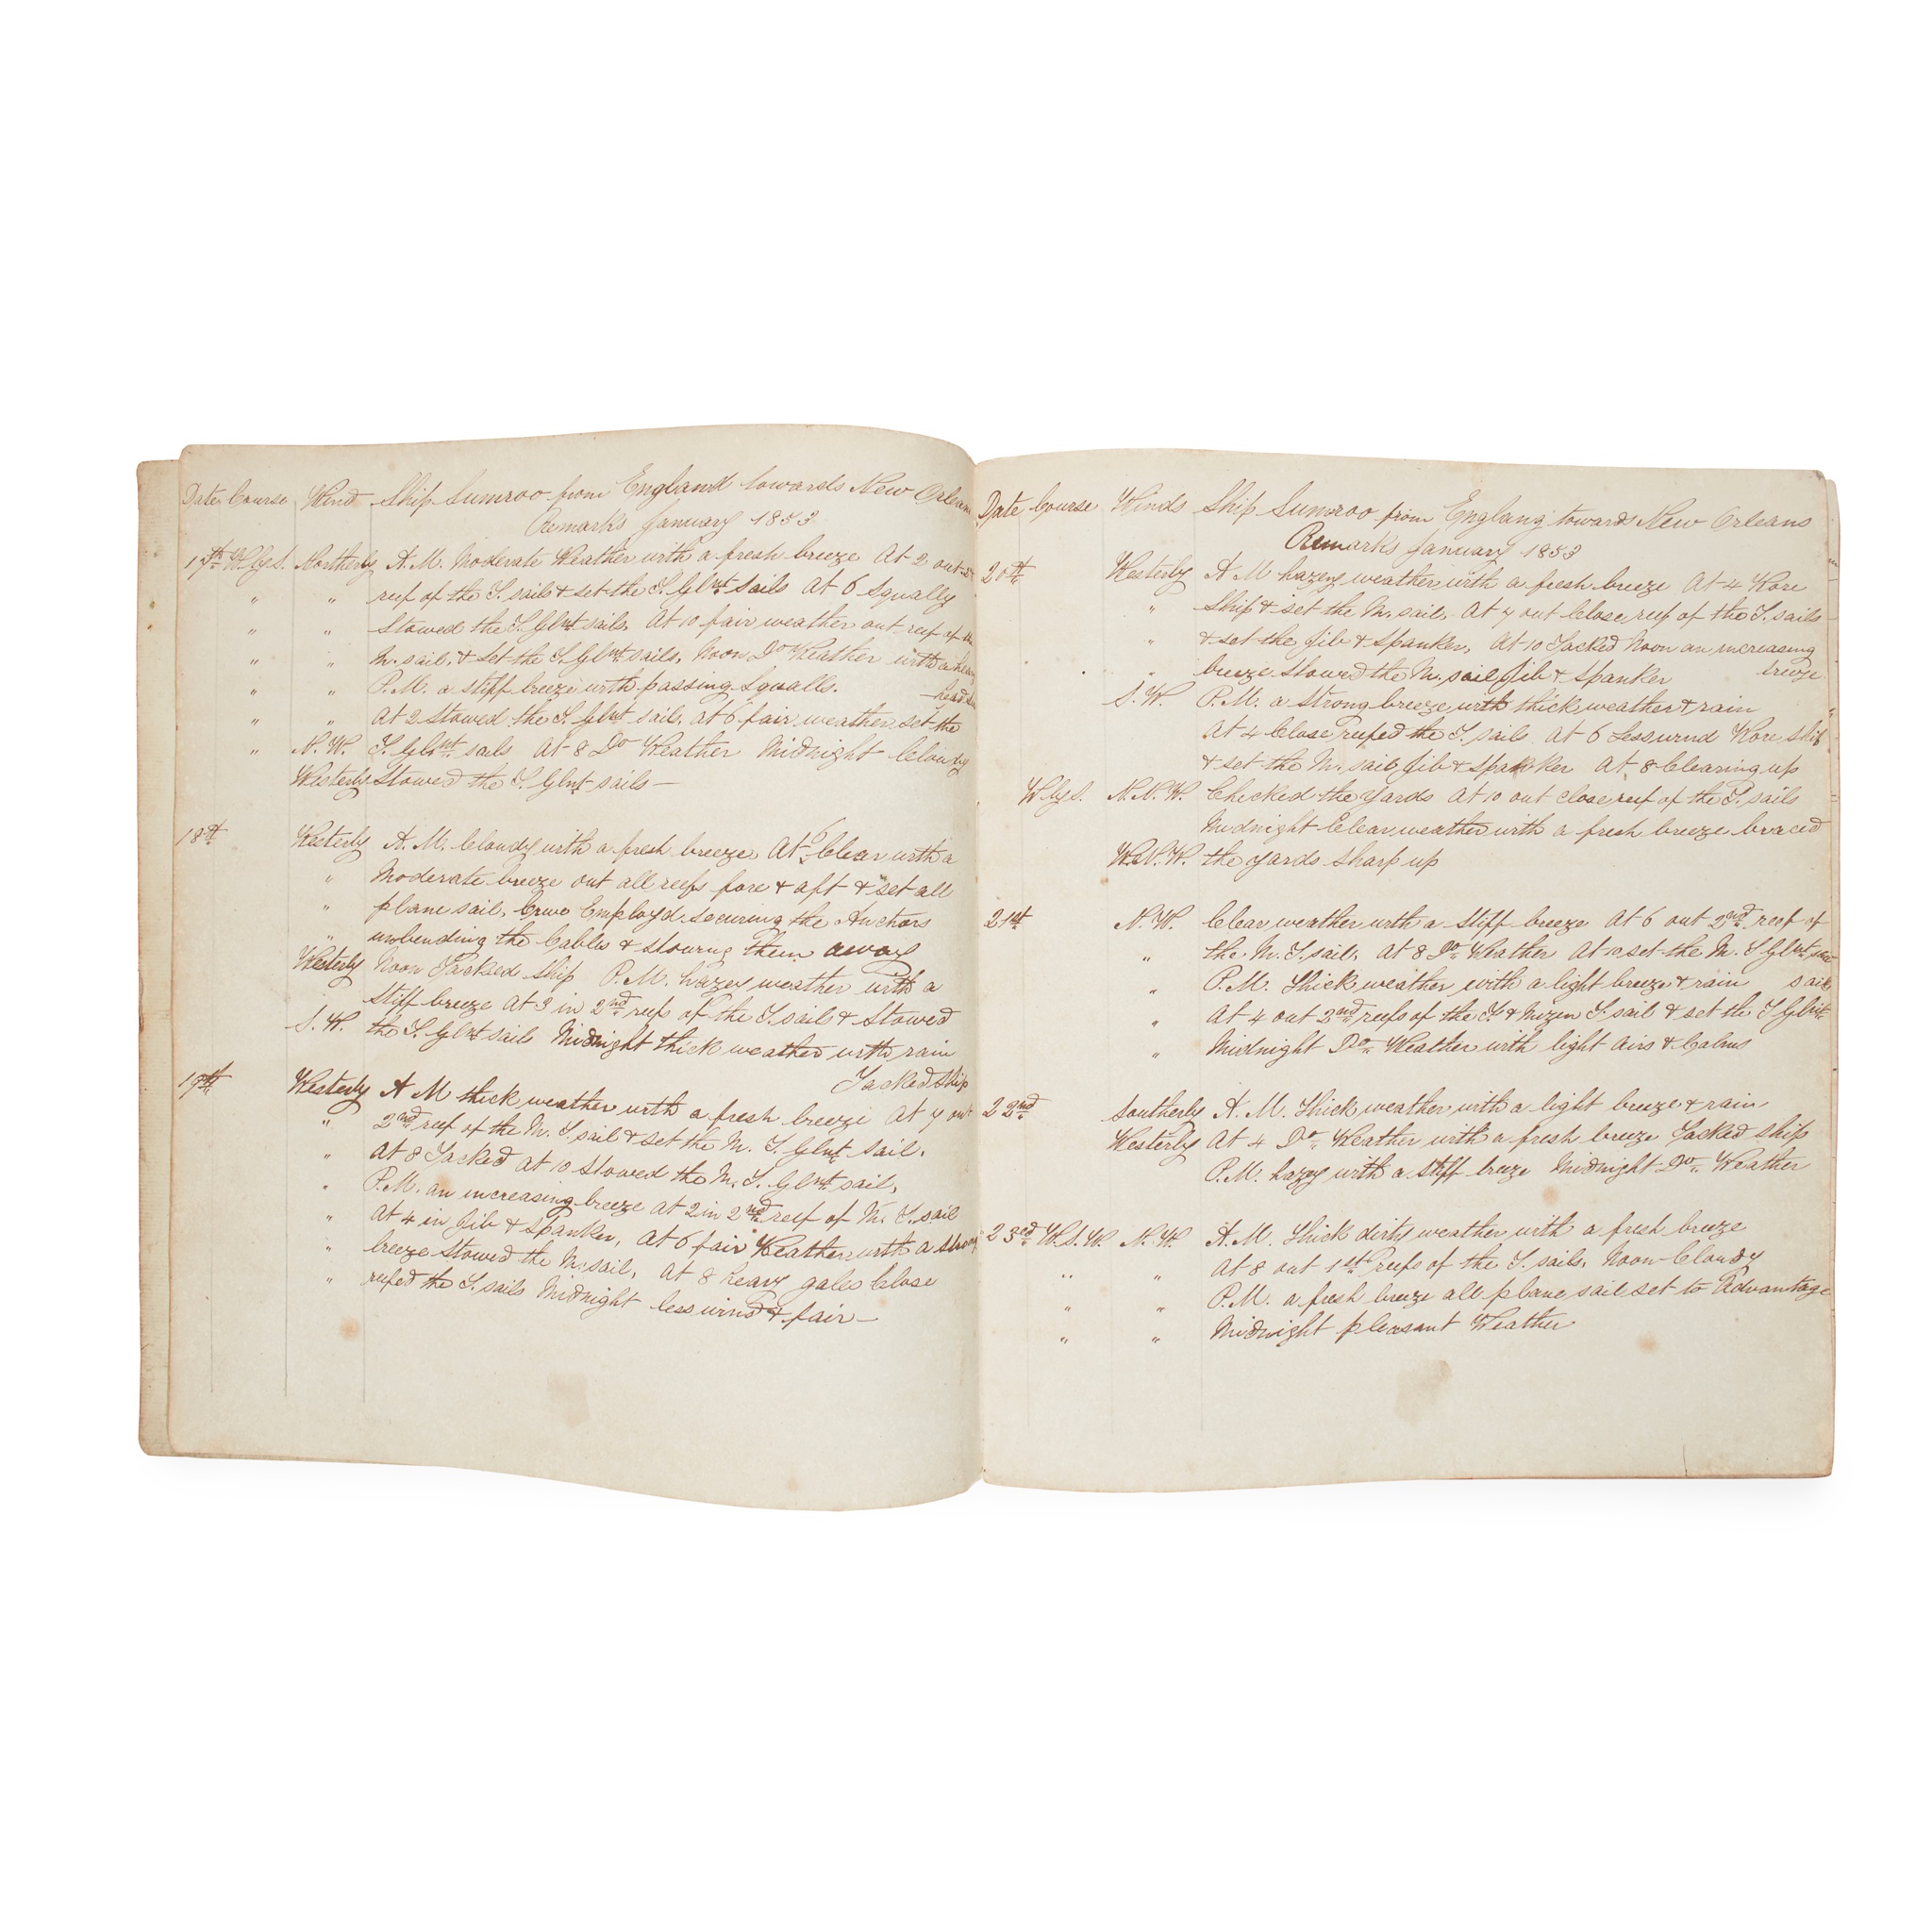 Date Course Wind Ship Sumroo from England towards New Orleans
Remarks January 1853
17th W.by S. Northerly A.M. Moderate Weather with a fresh breeze At 2 out 2nd
" " reef of the T. sails & set the T. Glnt sails At 6 Squally
" " Stowed the T. Glnt sails. At 10 fair weather out reef of the
" " M. sail, & set the T. Glnt sails, Noon Do Weather with a heavy
" " P.M. a stiff breeze with passing Squalls. head sea
" " At 2 Stowed the T. Glnt sails. at 6 fair weather set the
" N.W. T. Glnt sails At 8 Do Weather Midnight Cloudy
Westerly Stowed the T. Glnt sails —
18th Westerly A.M. Cloudy with a fresh breeze At 6 Clear with a
" Moderate breeze out all reefs fore & aft & set all
" plane sail, Crew Employd securing the Anchors
" unbending the Cables & stowing them away
Westerly Noon Tacked Ship P.M. hazey weather with a
stiff breeze At 3 in 2nd reefs of the T. sails & Stowed
S.W. the T. Glnt sails Midnight thick weather with rain
Tacked Ship
19th Westerly A M thick weather with a fresh breeze At 7 out
" 2nd reef of the M. T. sail & set the M. T. Glnt sail.
" At 8 Tacked At 10 Stowed the M. T. Glnt sail,
" P.M. an increasing breeze At 2 in 2nd reef of M. T. sail
" At 4 in Jib & Spanker, At 6 fair Weather with a strong
" breeze Stowed the M. sail, At 8 heavy gales Close
" reefed the T. sails Midnight less wind & fair —
Date Course Winds Ship Sumroo from Englang towards New Orleans
Remarks January 1853
20th Westerly A M hazey weather with a fresh breeze At 4 Wore
" Ship & set the M. sail, At 7 out Close reef of the T. sails
" & set the Jib & Spanker, At 10 Tacked Noon an increasing
" breeze Stowed the M. sail Jib & Spanker breeze
S.W. P.M. a strong breeze with thick weather & rain
At 4 Close reefed the T. sails At 6 Less wind Wore Ship
& set the M. sail Jib & Spanker At 8 Clearing up
W by S. N.N.W. Checked the yards At 10 out close reef of the T. sails
Midnight Clear weather with a fresh breeze braced
W.N.W. the yards Sharp up
21st N.W. Clear weather with a stiff breeze At 6 out 2nd reef of
" the M. T. sail, At 8 Do Weather At 10 set the M. T Glnt
" P.M. Thick weather with a light breeze & rain sail
" At 4 out 2nd reefs of the T. & Mizen T. sail & set the T Glnt
" Midnight Do Weather with light Airs & Calms
22nd Southerly A.M. Thick weather with a light breeze & rain
Westerly At 4 Do Weather with a fresh breeze Tacked Ship
P.M. hazey with a stiff breeze Midnight Do Weather
23rd W.S.W. N.W. A.M. Thick dirty weather with a fresh breeze
" " At 8 out 1st reefs of the T. sails, Noon Cloudy
" " P.M. a fresh breeze all plane sail set to Advantage
" " Midnight pleasant Weather